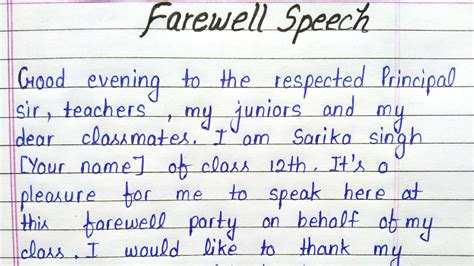 Farewell Speech
Good evening to the respected Principal
sir, teachers, my juniors and my
dear classmates. I am Sarika singh
[Your name] of class 12th. It's a
pleasure for me to speak here at
this farewell party on behalf of my
class. I would like to thank my